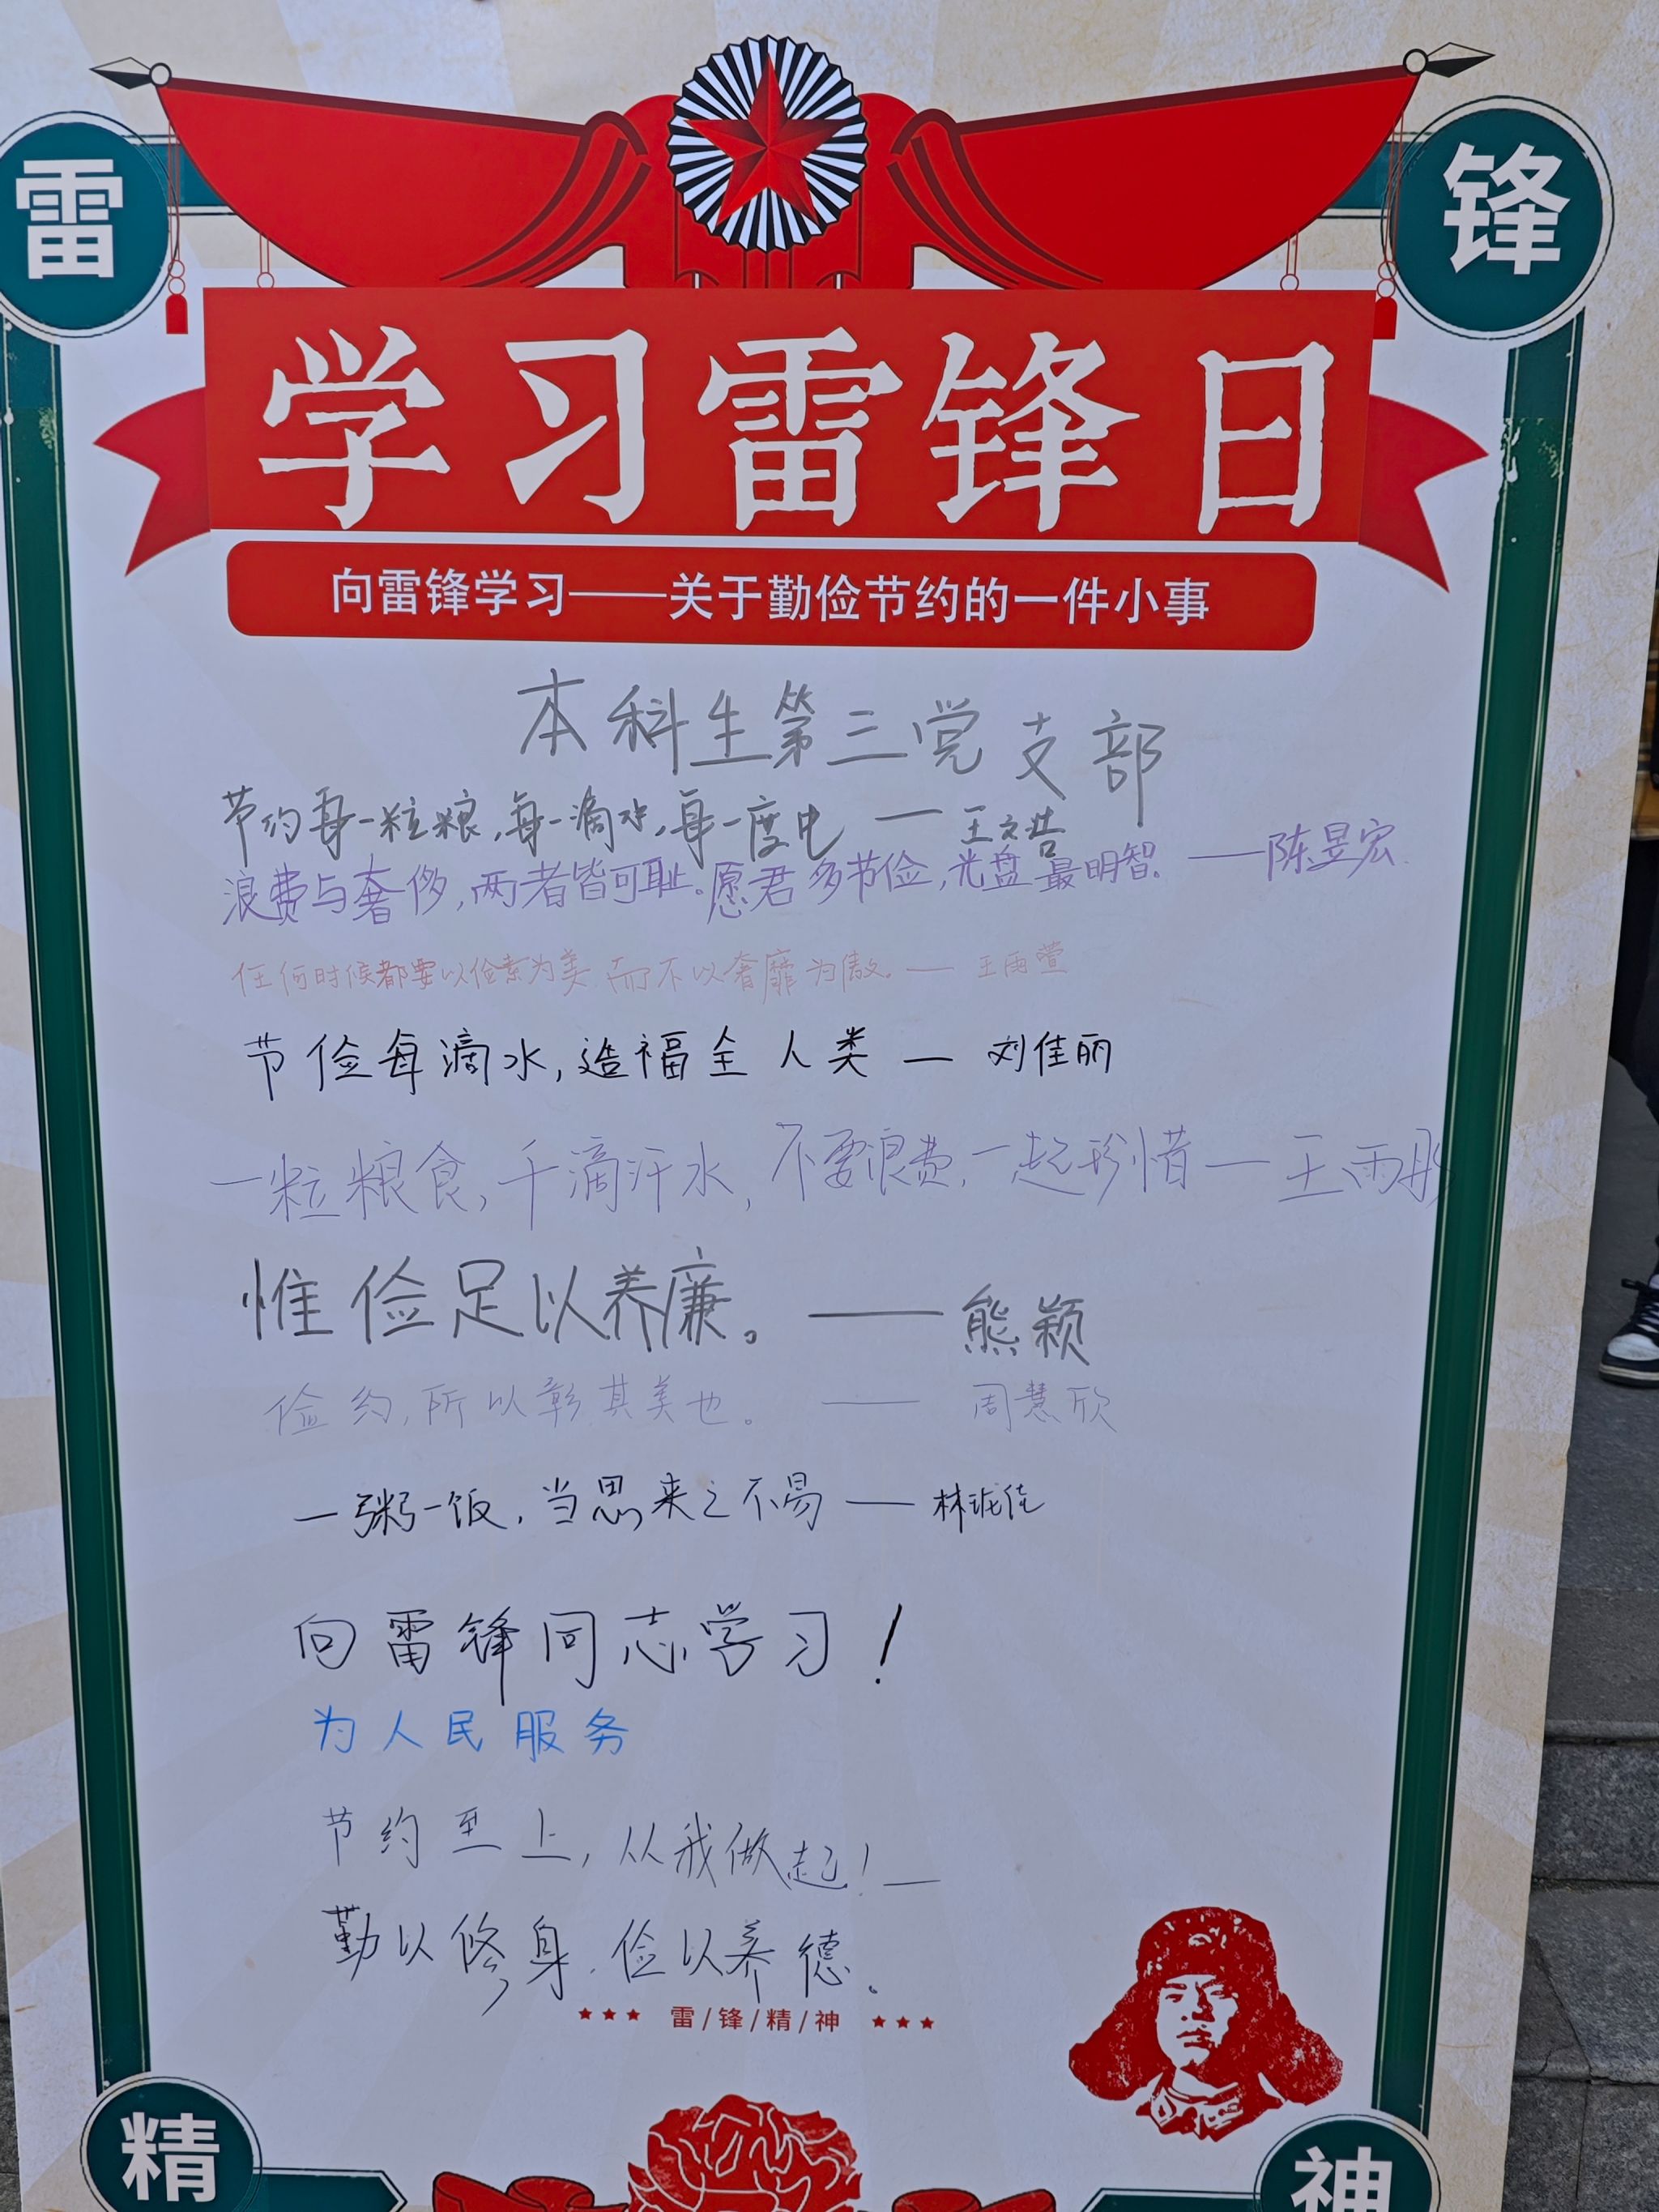 雷 锋
学习雷锋日
向雷锋学习——关于勤俭节约的一件小事
本科生第三党支部
节约每一粒粮,每一滴水,每一度电 ——王文浩
浪费与奢侈,两者皆可耻。愿君多节俭,光盘最明智。——陈昱宏
任何时候都要以俭素为美 而不以奢靡为傲。—— 王雨萱
节俭每滴水,造福全人类 — 刘佳丽
一粒粮食,千滴汗水,不要浪费,一起珍惜——王雨彤
惟俭足以养廉。——熊颖
俭约,所以彰其美也。——周慧欣
一粥一饭,当思来之不易——林 佳
向雷锋同志学习!
为人民服务
节约至上,从我做起!—
勤以修身.俭以养德。
雷/锋/精/神
精 神